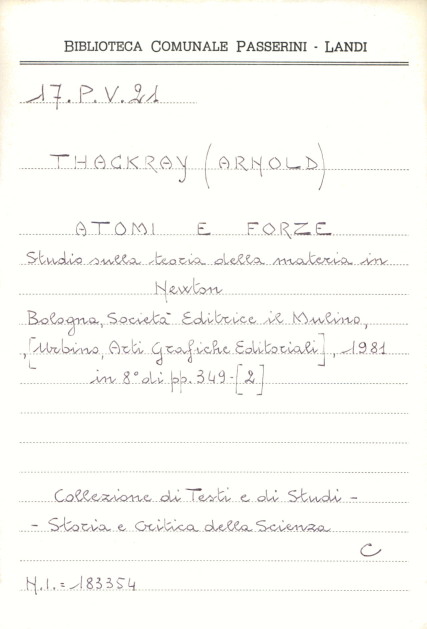 BIBLIOTECA COMUNALE PASSERINI - LANDI
17. P. V. 21
THACKRAY (ARNOLD)
ATOMI E FORZE
Studio sulla teoria della materia in
Newton
Bologna, Società Editrice il Mulino,
,[Urbino, Arti Grafiche Editoriali], 1981
in 8° di pp. 349-[2]
Collezione di Testi e di Studi -
- Storia e Critica della Scienza
C
N.I.= 183354